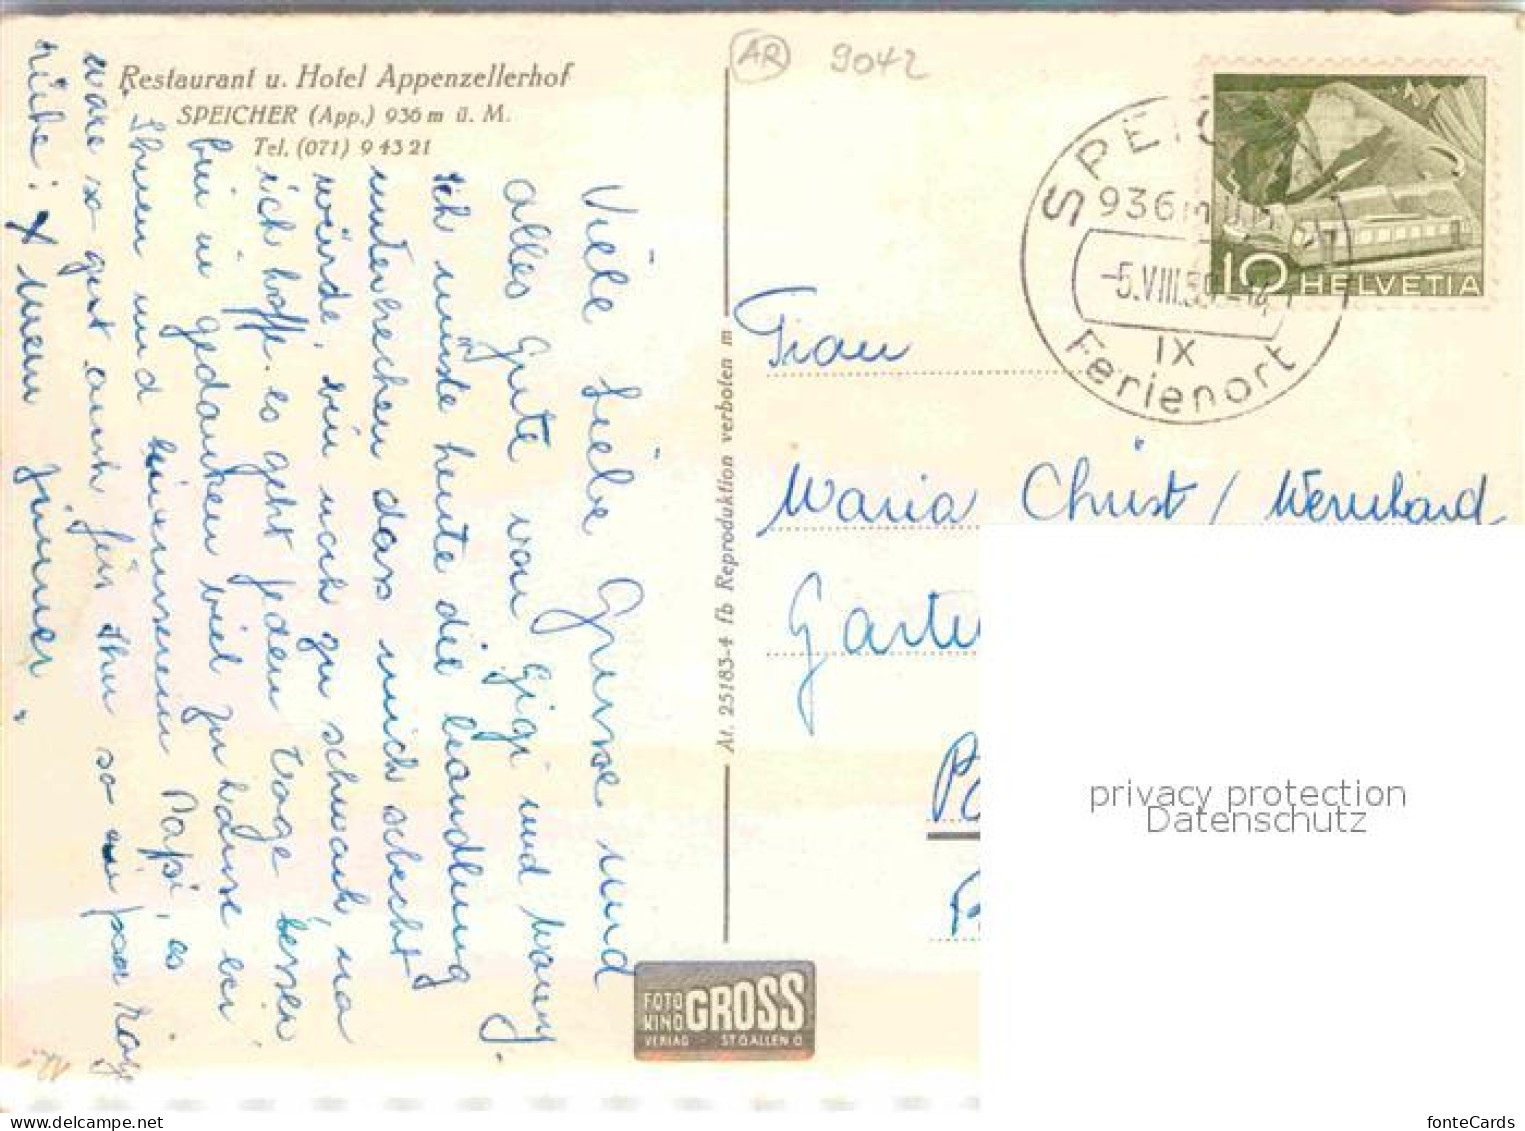 Restaurant u. Hotel Appenzellerhof
SPEICHER (App.) 936 m ü. M.
Tel. (071) 9 43 21
Viele liebe Grüsse und
alles Gute von Gigi und
Ich müsste heute die
unterbrechen dass mich schecht
würde, bin noch zu schwach, na
ich hoffe. es geht jeden Tage besser
bin in gedanken viel zu hause bei
Ihnen und Papi, es
wäre so gut auch für Ihn so ein paar
rühe: immer.
At. 25183-4 fb Reproduktion verboten m
FOTO
KINO
GROSS
VERLAG ST GALLEN O
AR
9042
SPEIC
936 m ü.
-5.VIII.5
IX
Ferienort
10 HELVETIA
Frau
Maria Christ / Wernhard
Garte
privacy protection
Datenschutz
fonteCards